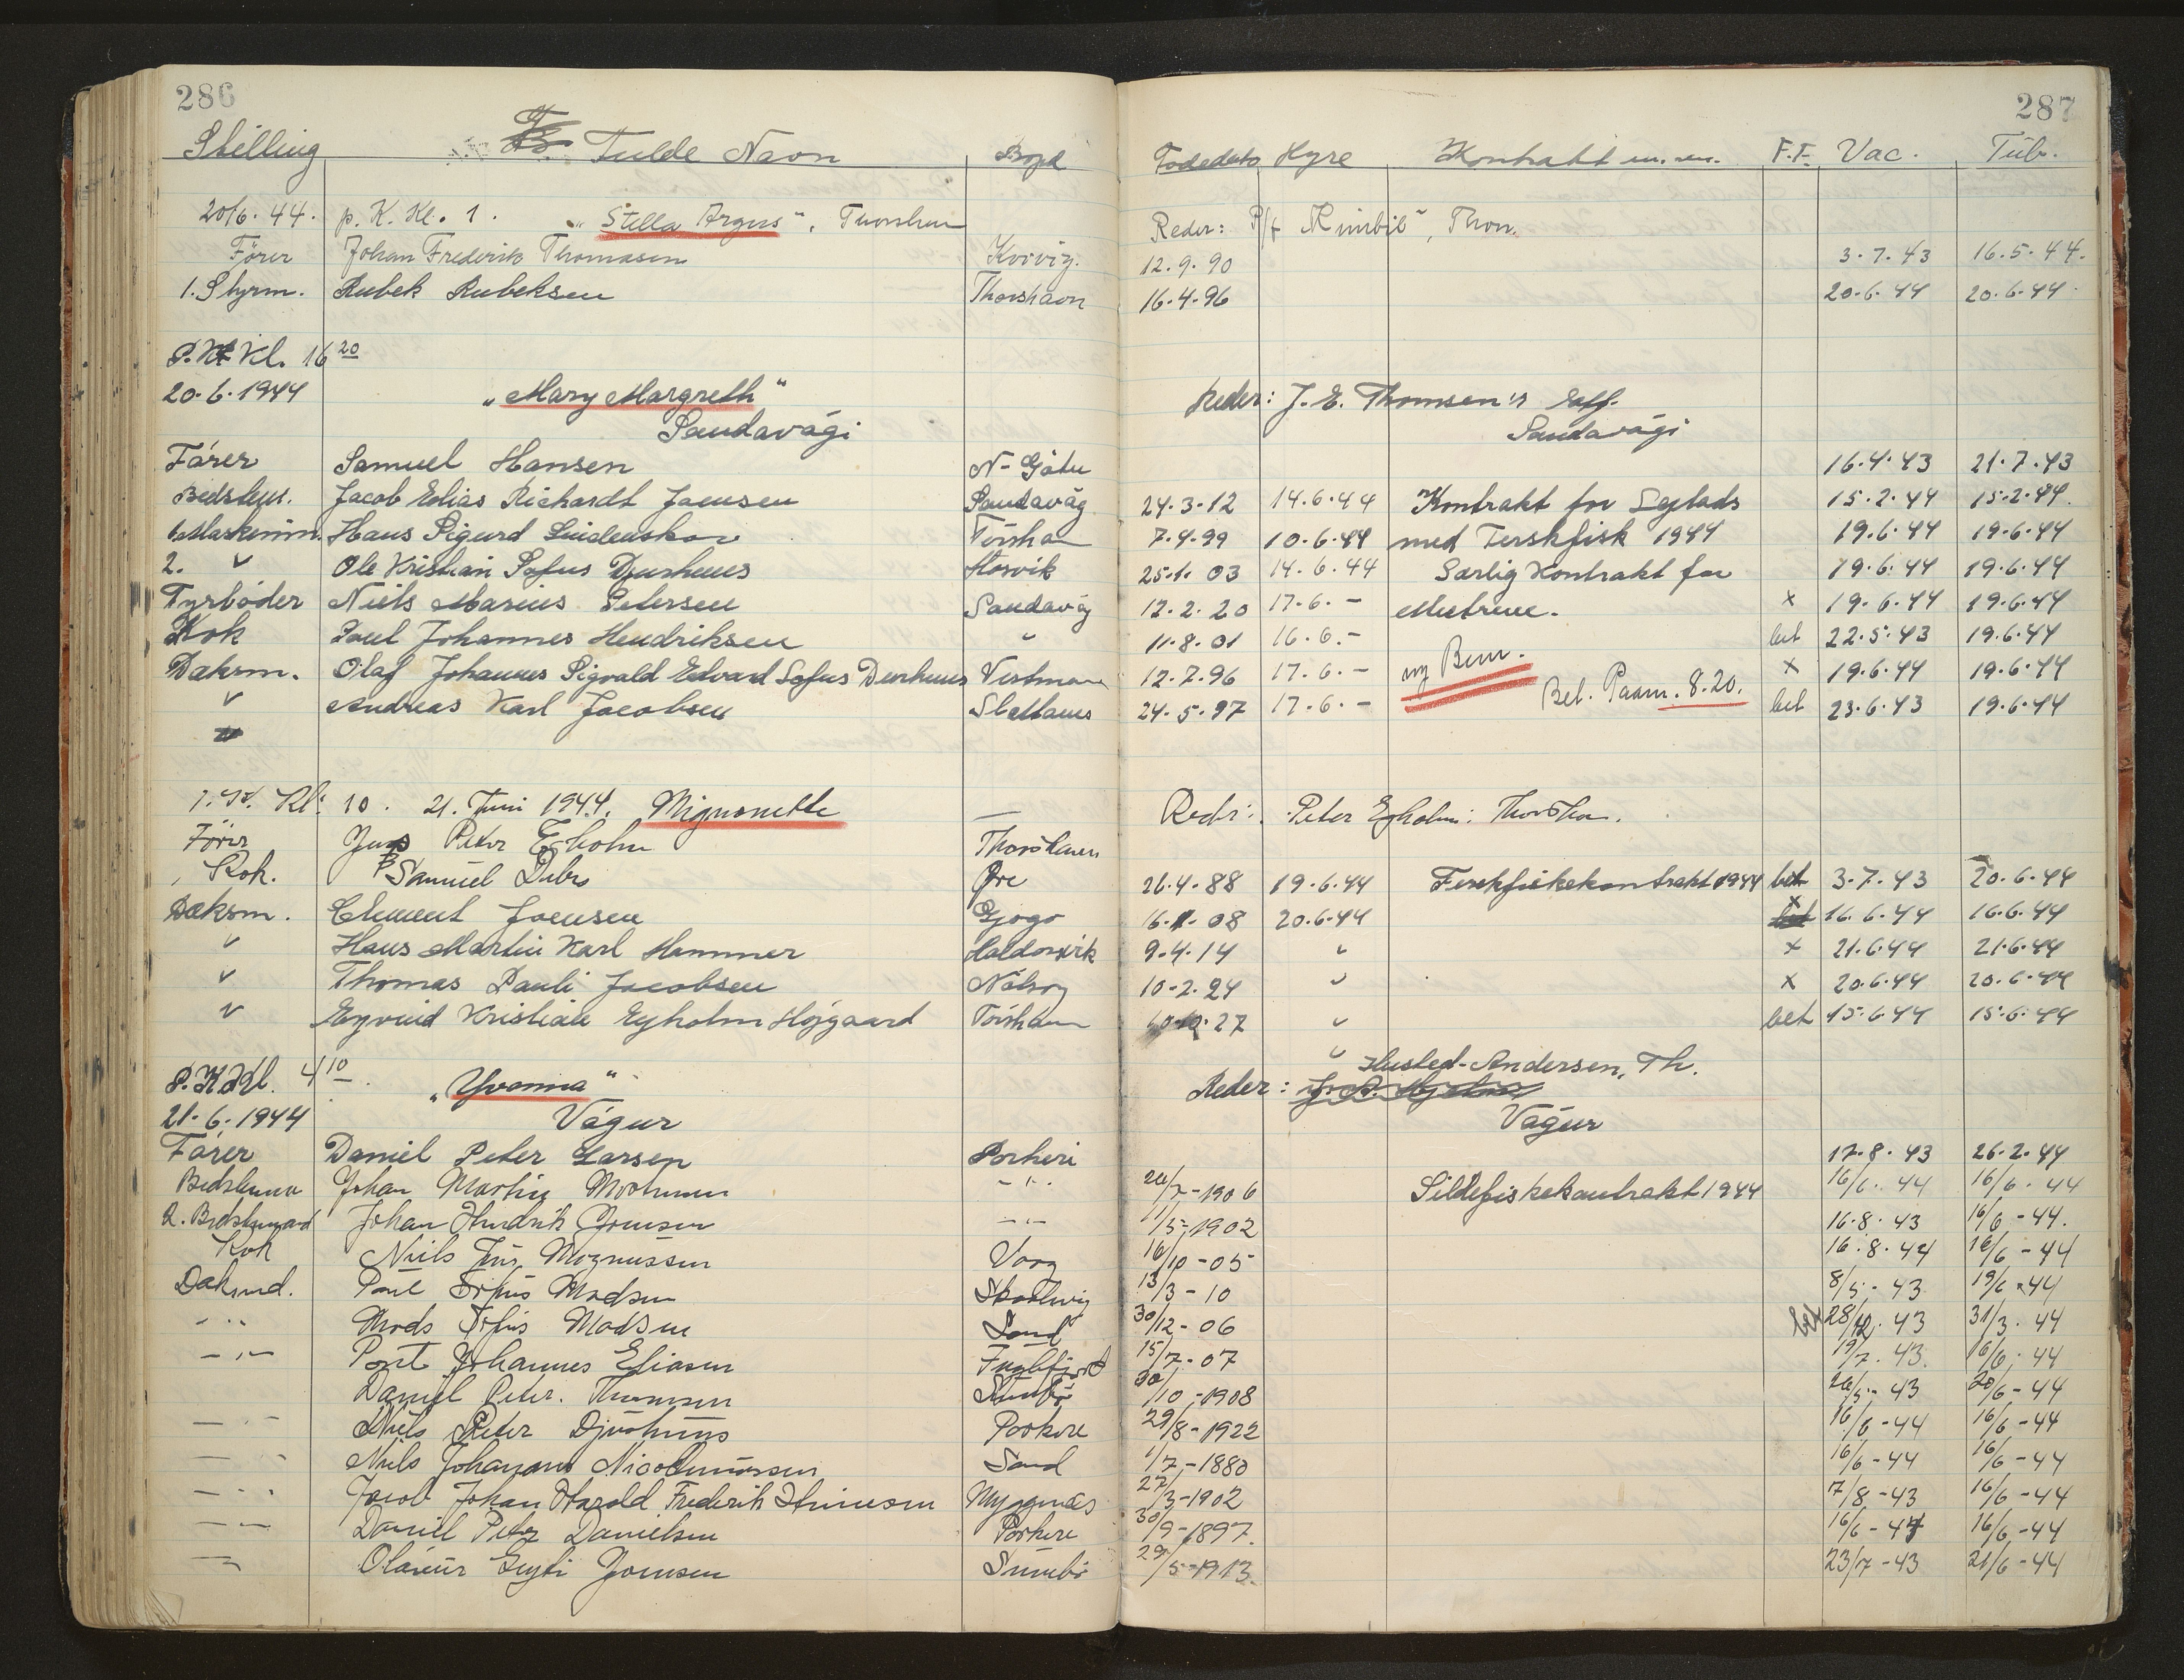 286
287
Stilling Fulde Navn Bopæl Fødedato Hyre Kontrakt m.m. F.F. Vac. Tub.
20/6.44. p. K. Kl. 1. "Stella Argus", Thorshavn Reder: P/f , Thvn.
Förer Johan Frederik Thomasen Kvivig. 12.9.90 3.7.43 16.5.44.
1. Styrm. Rubek Rubeksen Thorshavn 16.4.96 20.6.44 20.6.44.
P.K. Kl. 16 20
20.6.1944 "Mary Margreth" Reder: J.E. Thomsen's Eftf.
Sandavági Sandavági
Fårer Samuel Hansen N-Gøtu 16.4.43 21.7.43
Bedstem. Jacob Elias Richardt Joensen Sandavág 24.3.12 14.6.44 Kontrakt for Sejlads 15.2.44 15.2.44.
1. Maskinm. Hans Sigurd Lindenskov Tórshavn 7.4.99 10.6.44 med Ferskfisk 1944 19.6.44 19.6.44
2. " Ole Kristian Sofus Djurhuus Hósvik 25.1.03 14.6.44 Særlig Kontrakt for 19.6.44 19.6.44
Fyrbøder Niels Marius Petersen Sandavág 12.2.20 17.6.- Mestrene. x 19.6.44 19.6.44
Kok Poul Johannes Hendriksen " 11.8.01 16.6.- bet 22.5.43 19.6.44
Dæksm. Olaf Johannes Sigvald Edvard Sofus Djurhuus Vestmanna 12.7.96 17.6.- ny Bem. x 19.6.44 19.6.44
" Andreas Karl Jacobsen Slættanes 24.5.97 17.6.- Bet. Paam. 8.20. bet 23.6.43 19.6.44
P.K. Kl. 10. 21. Juni 1944. Mignonette Reder: Peter Egholm: Thorshavn.
Förer Jens Peter Egholm Thorshavn
Kok. Samuel Øre 26.4.88 19.6.44 Ferskfiskekontrakt 1944 bet 3.7.43 20.6.44
Dæksm. Clement Joensen Gjogv 16.1.08 20.6.44 x 16.6.44 16.6.44
" Hans Martin Karl Hammer Haldorsvik 9.4.14 " x 21.6.44 21.6.44
" Thomas Pauli Jacobsen Nólsoy 10.2.24 " x 20.6.44 20.6.44
" Eyvind Kristian Egholm Højgaard Tórshavn 27 " bet 15.6.44 15.6.44
P.K. Kl. 4 10 "Yvonna" Reder: " Husted-Andersen, Th.
21.6.1944 Vágur Vágur
Fårer Daniel Peter Larsen Porkeri 17.8.43 26.2.44
Bedstemand Johan Martin Mortensen -"- 26/7-1906 Sildefiskekontrakt 1944 16/6.44 16/6.44
2. Bedstemand Johan Hendrik Joensen -"- 1/5-1902 16.8.43 16/6-44.
Kok Niels Jens Magnussen Vaag 16/10-05 16.8.44 16/6-44
Dæksmd. Poul Sofus Madsen 13/3-10 8/5-43 19/6-44
-"- Mads Sofus Madsen Sand 30/12-06 bet 28/12.43 31/3.44
-"- Poul Johannes Eliasen Fuglefjord 15/7-07 19/7.43. 16/6.44
Daniel Peter Thomsen Sumbø 30/10-1908 26/5-43 20/6-44
-"- Niels Peter Djurhuus Porkere 29/8-1922 16/6-44 16/6-44
-"- Niels Johannes Sand 1/7-1880 16/6-44 16/6-44
-"- Jacob Johan Harald Frederik Myggenæs 27/3-1902 7/8-43 16/6-44
-"- Daniel Peter Danielsen Porkere 30/9-1897. 16/6-44 16/6-44
-"- Joensen Sumbø 29/5-1913. 23/7-43 21/6-44